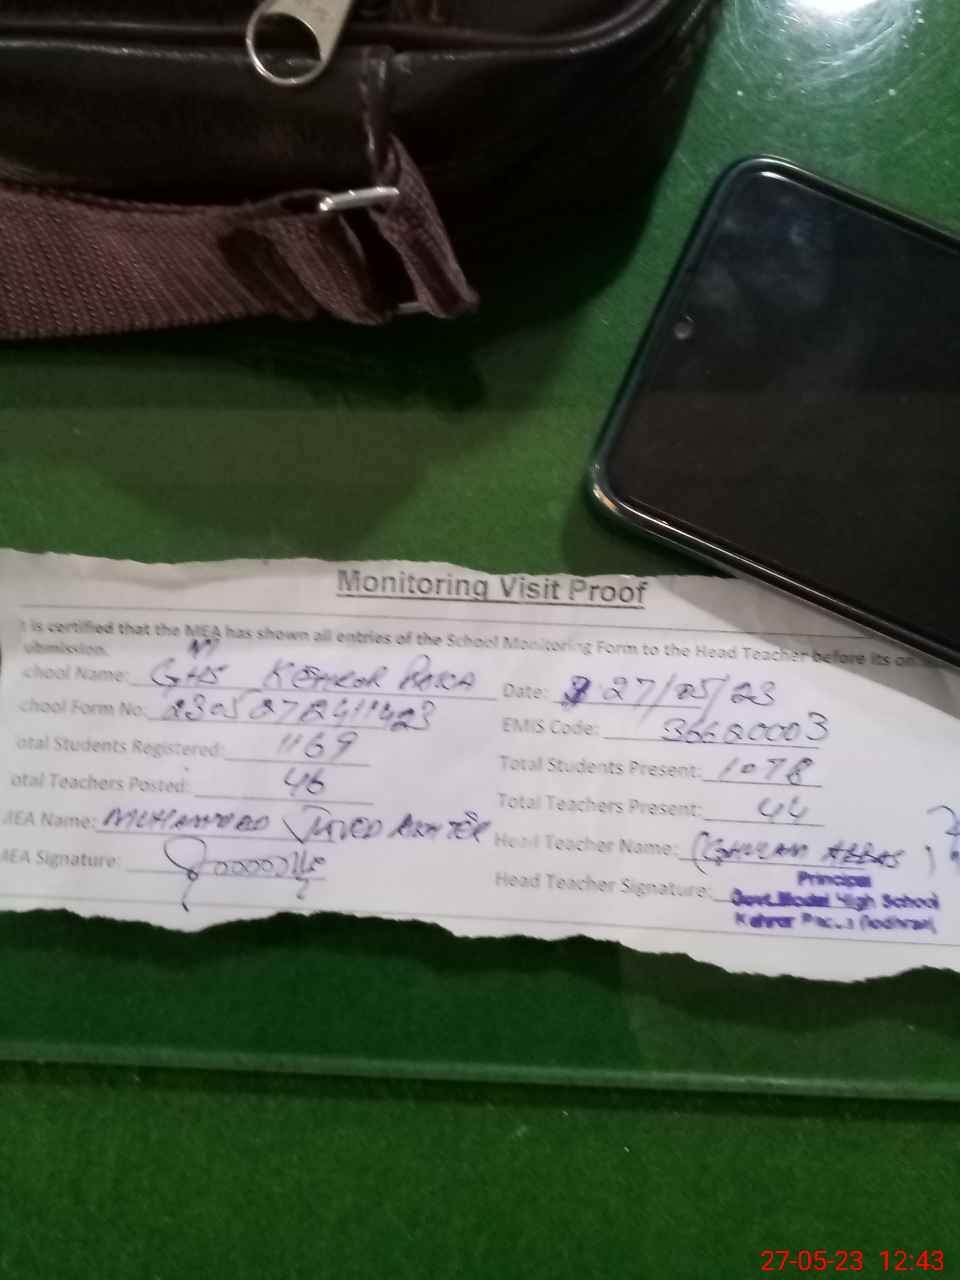 Monitoring Visit Proof
t is certified that the MEA has shown all entries of the School Monitoring Form to the Head Teacher before its on
ubmission.
M
chool Name: GHS KEHROR PACCA Date: 27/05/23
chool Form No: EMIS Code: 36620003
otal Students Registered: 1169 Total Students Present: 1078
otal Teachers Posted: 46 Total Teachers Present: 44
MEA Name: MUHAMMAD JAVED AKHTER Head Teacher Name: (GHULAM ABBAS)
MEA Signature: Head Teacher Signature:
Principal
Govt. Model High School
Kahror
27-05-23 12:43